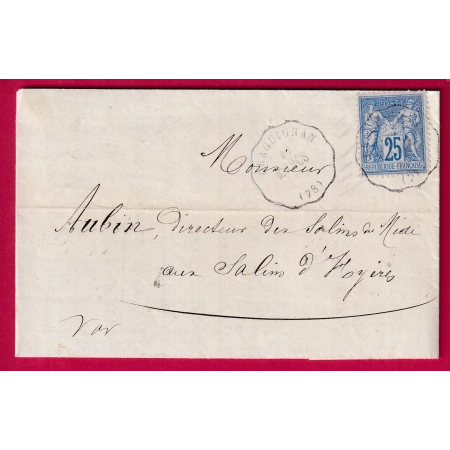 POSTE
25
REPUBLIQUE FRANÇAISE
AUBIGNAN
(78)
Monsieur
Aubin, Directeur des Salins du Midi
aux Salins d'Hyères
Var